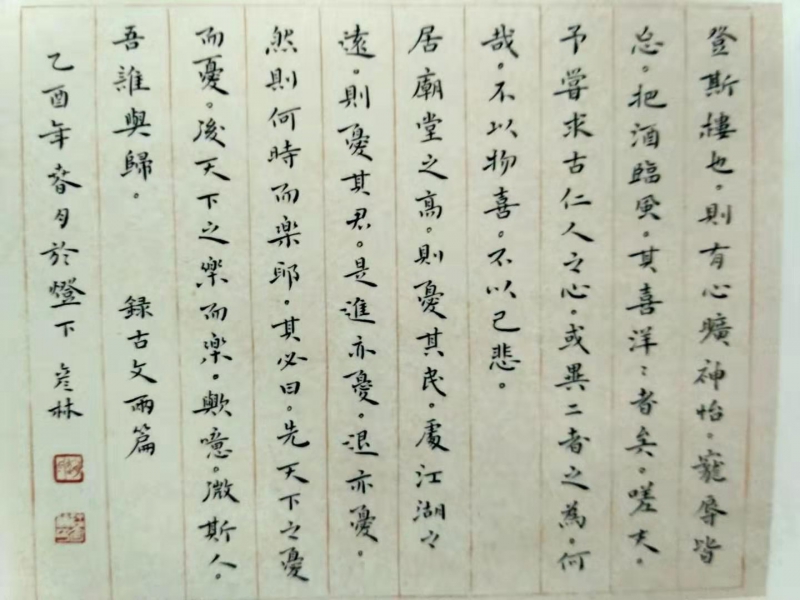 登斯樓也。則有心曠神怡。寵辱皆
忘。把酒臨風。其喜洋〻者矣。嗟夫。
予嘗求古仁人之心。或異二者之為。何
哉。不以物喜。不以己悲。
居廟堂之高。則憂其民。處江湖之
遠。則憂其君。是進亦憂。退亦憂。
然則何時而楽耶。其必曰。先天下之憂
而憂。後天下之樂而楽。歟噫。微斯人。
吾誰與歸。
錄古文兩篇
乙酉年春月於燈下 彦林